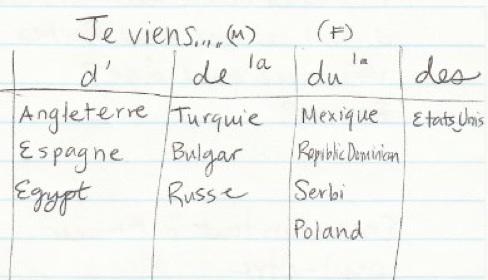 Je viens.... (M) (F)
d' de la du la des
Angleterre Turquie Mexique Etats Unis
Espagne Bulgar Repiblic Dominian
Egypt Russe Serbi
Poland